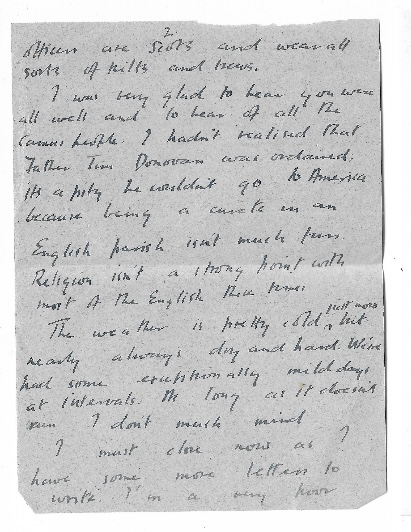 2
officers are Scots and wear all
sorts of kilts and trews.
I was very glad to hear you were
all well and to hear of all the
Camus people. I hadn't realised that
Father Tim Donovan was ordained.
Its a pity he couldn't go to America
because being a curate in an
English parish isn't much fun.
Religion isn't a strong point with
most of the English these times
The weather is pretty cold just now, but
nearly always dry and hard. We've
had some exceptionally mild days
at intervals. As long as it doesn't
rain I don't much mind
I must close now as I
have some more letters to
write. I'm a very poor